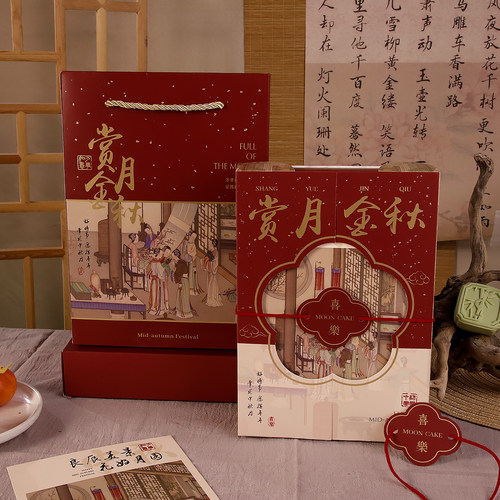 风夜放花千树 更吹
如雨
马雕车香满路
箫声动 玉壶光转
儿雪柳黄金缕 笑语
里寻他千百度 蓦然
人却在 灯火阑珊处
赏月
金
FULL
OF
THE M
Mid-autumn Festival
SHANG YUE JIN QIU
赏月金秋
喜樂
MOON CAKE
MID-
喜樂
MOON CAKE
良辰美景
花好月圆